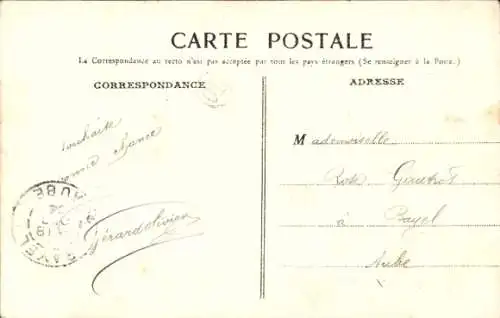 CARTE POSTALE
La Correspondance au recto n'est pas acceptée par tous les pays étrangers (Se renseigner à la Poste.)
CORRESPONDANCE
ADRESSE
souhaite
bonne chance
Gérardolivier
BAYEL
AUBE
Mademoiselle
Rose Gautrot
à
Bayel
Aube